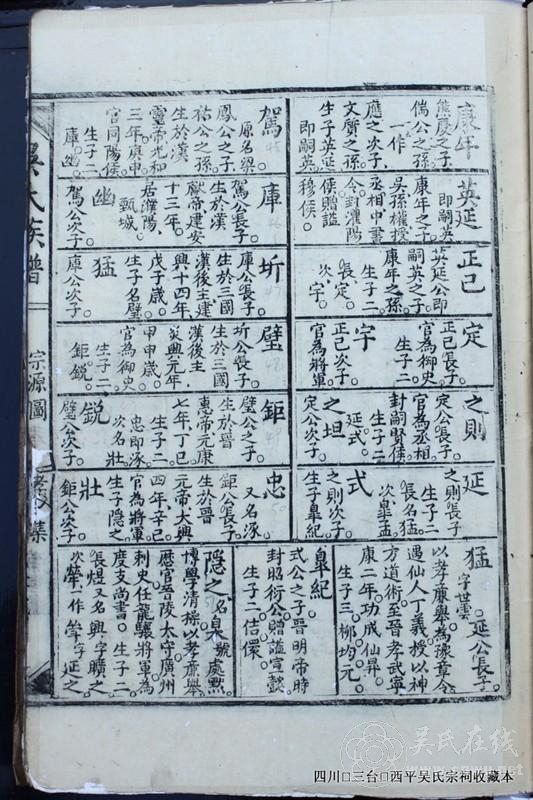 康年
熊慶之子
倘公之孫
一作
應之次子
文質之孫
生子英延
即嗣英
英延
即嗣英
康年之子
吳孫權授
丞相中書
令封灌陽
侯贈謚
穆侯。
正己
英延公即
嗣英之子
康年之孫
生子二
長定。
次宇。
定
正己長子
官為御史
生子二
宇
正己次子
官為將軍
之則
定公長子
官為丞相
封嗣賢侯
生子二
延式。
之坦
定公次子
延
之則長子
生子二
長名猛。
次臯孟
式
之則次子
生子臯紀
猛 字世雲。延公長子。
以孝廉舉為豫章令
遇仙人丁義授以神
方道術至晉孝武寧
康二年功成仙昇
生子三。柳均元。
臯紀
式公之子晉明帝時
封昭衍公贈謚宣懿
生子二佶儇。
駕
原名梁
鳳公之子
祜公之孫
生於漢
靈帝光和
三年庚申
官同陽侯
生子二
庫幽。
庫
駕公長子
生於漢
獻帝建安
十三年。
居濮陽
甄城。
幽
駕公次子
圻
庫公長子
生於三國
漢後主建
興十四年
戊子歲。
生子名壁
猛
庫公次子
壁
圻公長子
生於三國
漢後主
炎興元年
甲申歲。
官為御史
生子二
鉅銳。
鉅
壁公之子
生於晉
惠帝元康
七年丁巳
生子二
忠即涿
次名壯
銳
壁公次子
忠
又名涿
鉅公長子
生於晉
元帝大興
四年辛巳
官為將軍
生子隱之
壯
鉅公次子
隱之 名臯號處默
博學清操以孝廉舉
歷官晉陵太守廣州
刺史任龍驤將軍為
度支尚書。生子二
長煜又名興字曠之
次榮一作 字延之
吳氏族譜
宗源圖
集
吳氏在线
.net
四川□三台□西平吴氏宗祠收藏本